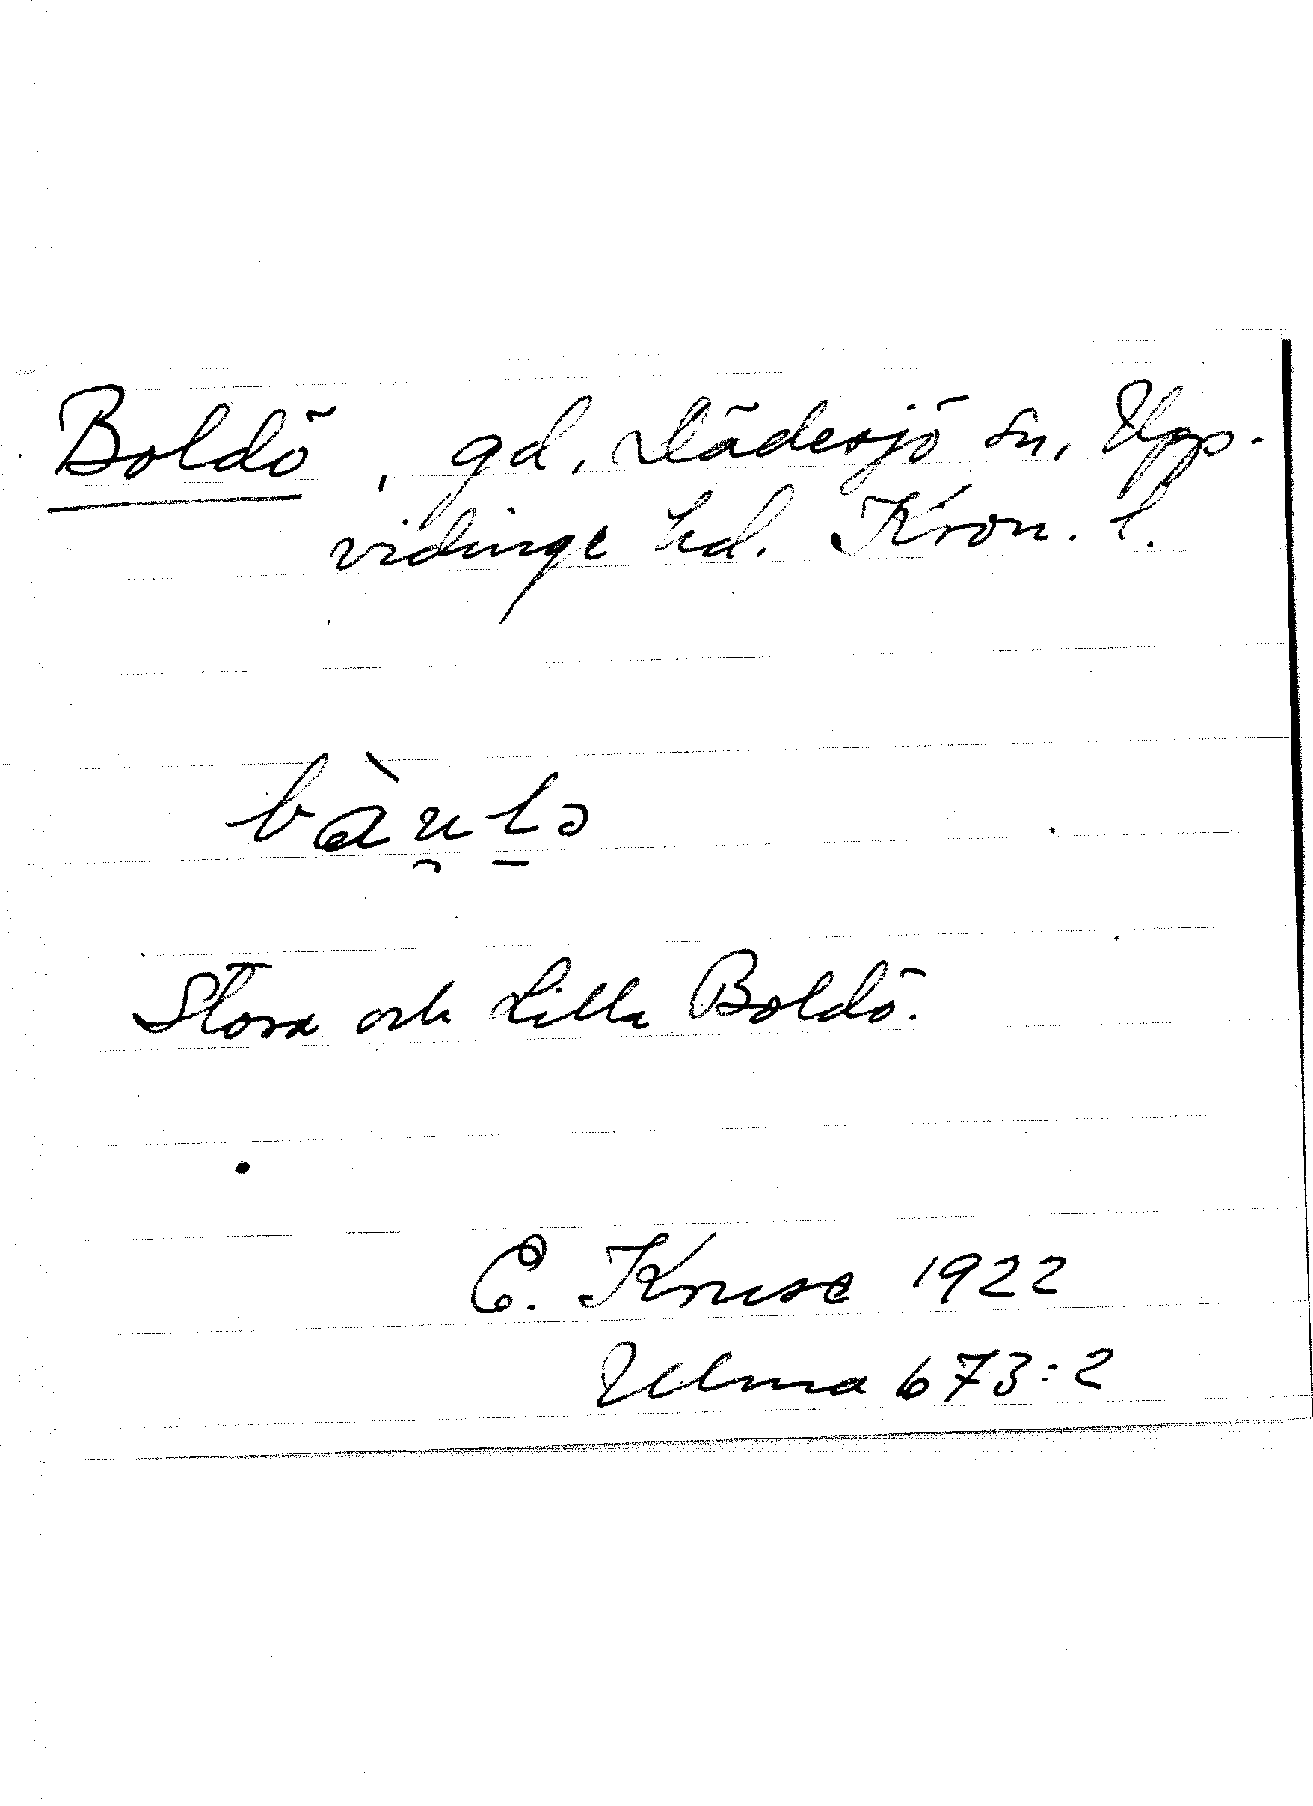 Boldö, gd, Dädesjö sn, Upp-
vidinge hd. Kron. l.
bàu̯l̠ə
Stora och Lilla Boldö.
C. Kruse 1922
Ulma 673:2